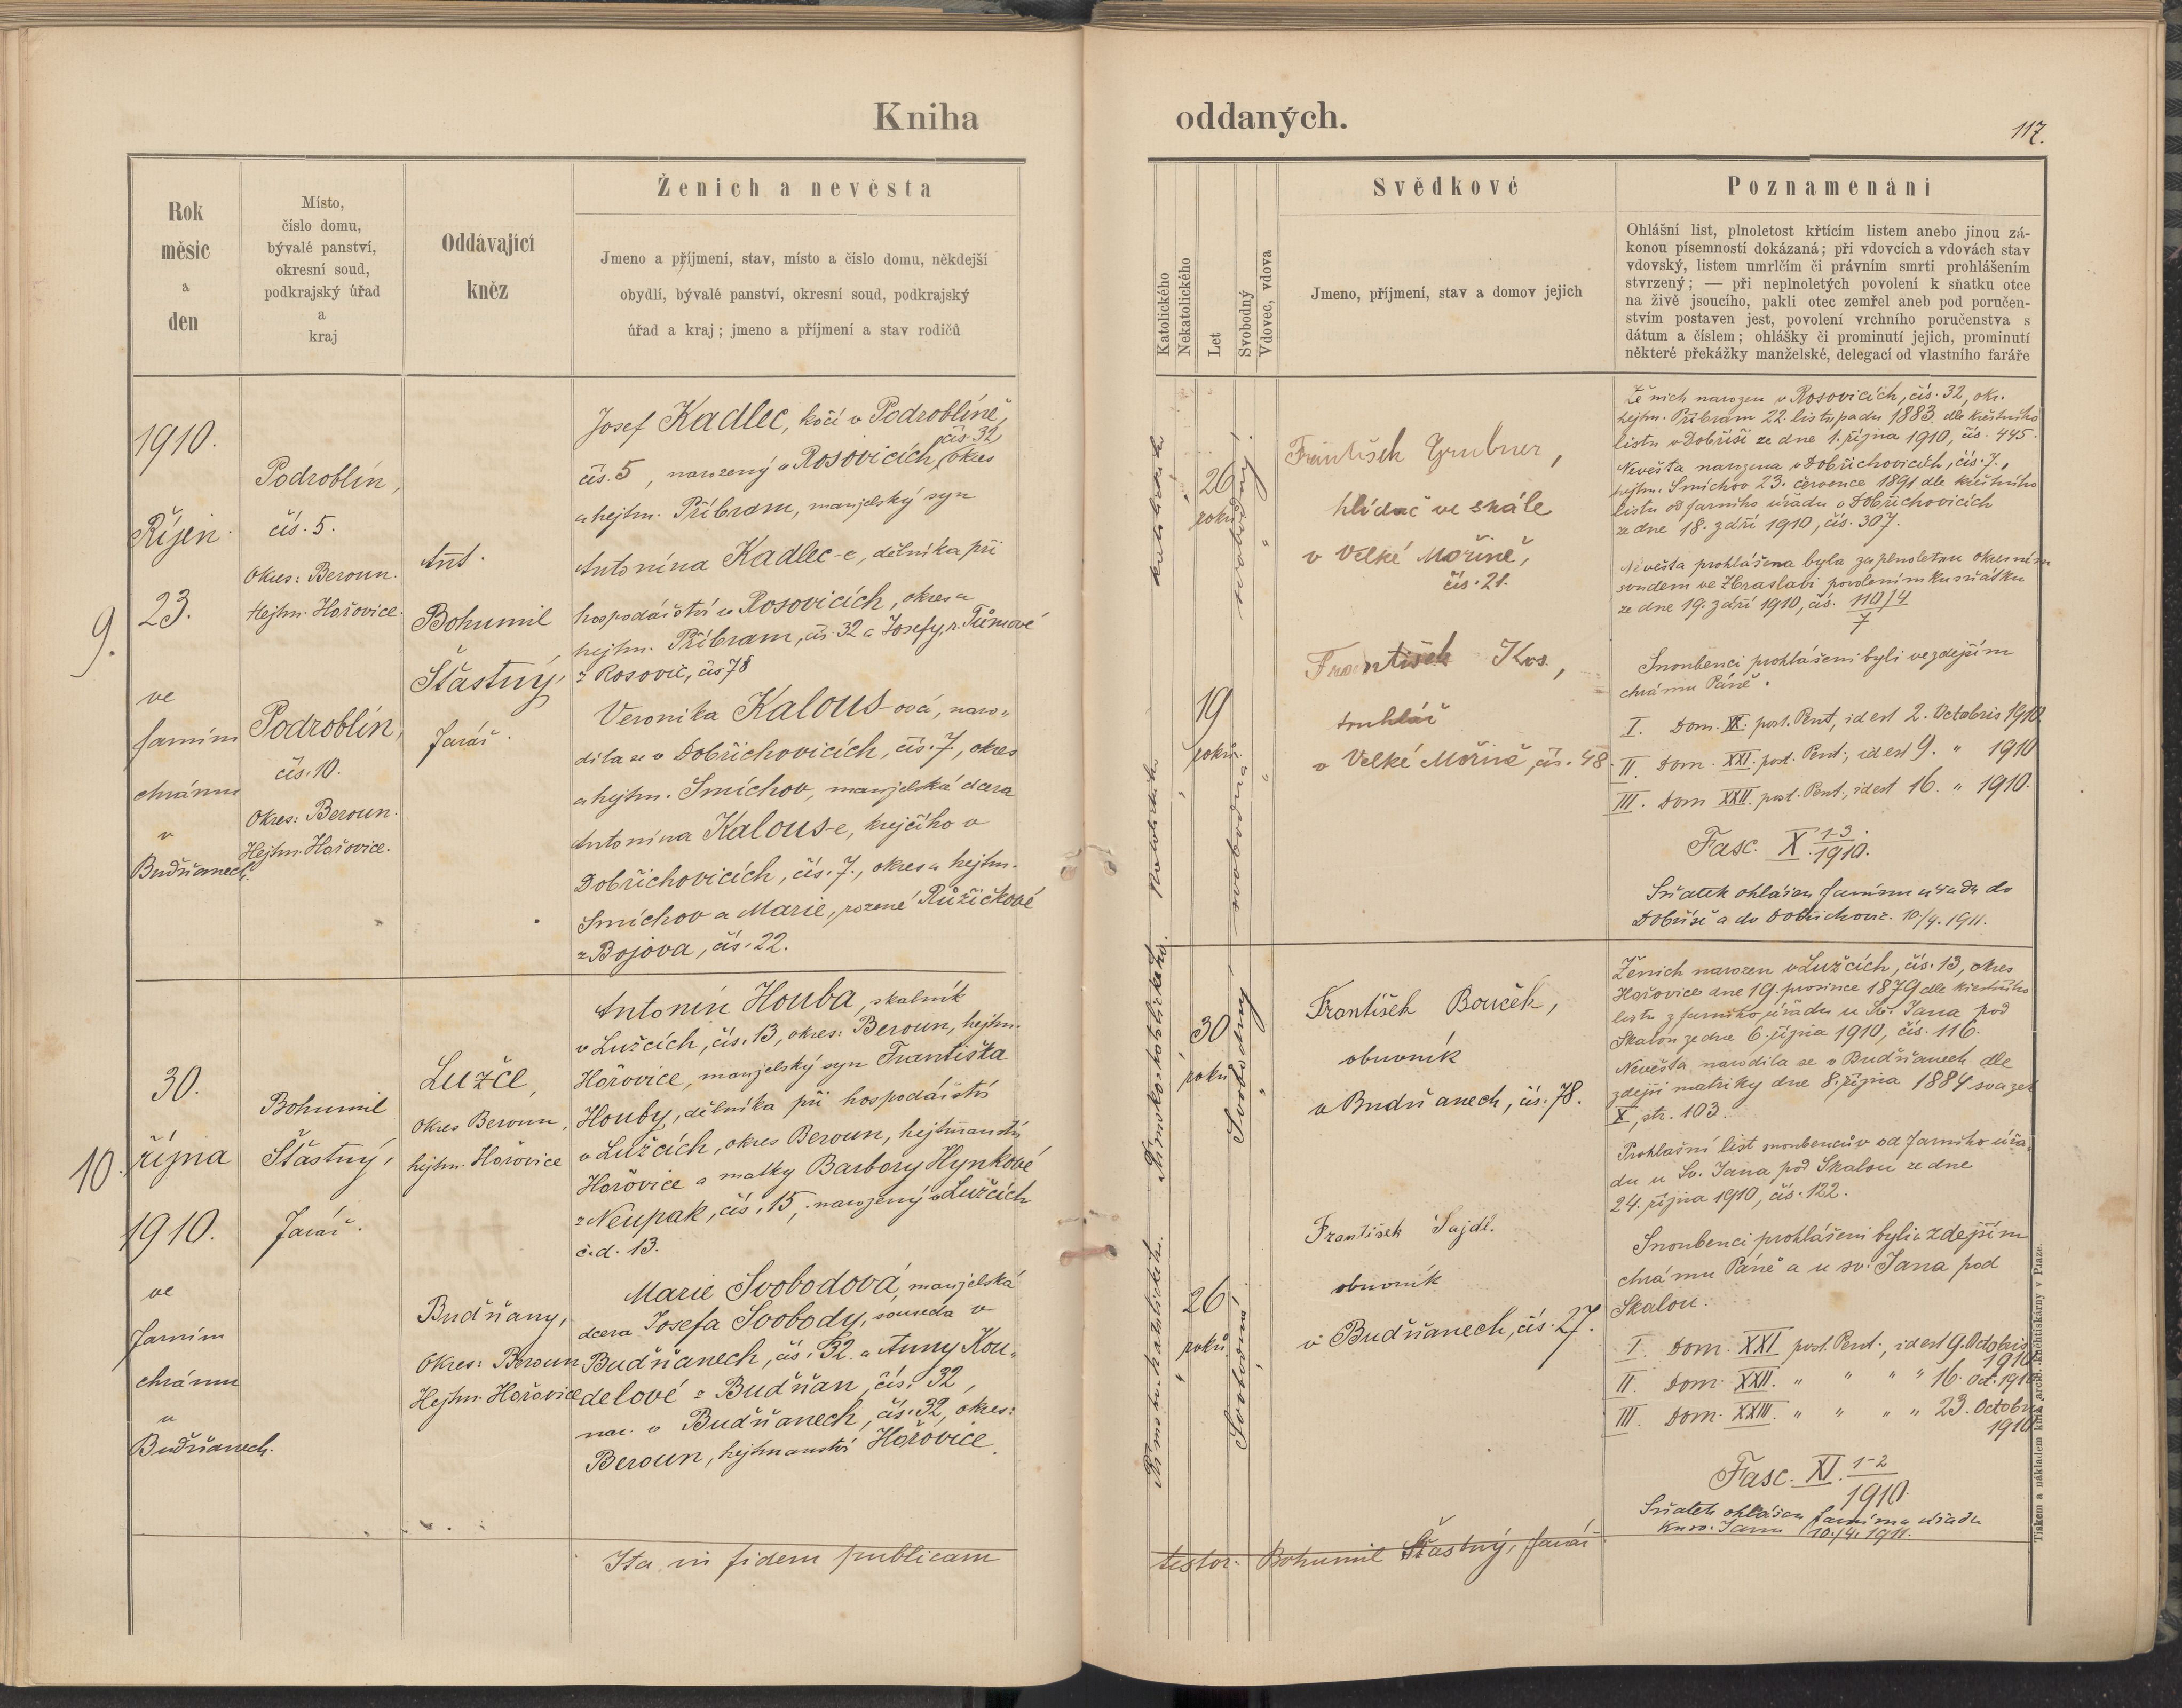 Kniha
oddaných.
117.
Rok
měsíc
a
den
Místo,
číslo domu,
bývalé panství,
okresní soud,
podkrajský úřad
a
kraj
Oddávající
kněz
Ženich a nevěsta
Jmeno a příjmení, stav, místo a číslo domu, někdejší
obydlí, bývalé panství, okresní soud, podkrajský
úřad a kraj; jmeno a příjmení a stav rodičů
Katolického
Nekatolického
Let
Svobodný
Vdovec, vdova
Svědkové
Jmeno, příjmení, stav a domov jejich
Poznamenání
Ohlášní list, plnoletost křtícím listem anebo jinou zá-
konou písemností dokázaná; při vdovcích a vdovách stav
vdovský, listem umrlčím či právním smrti prohlášením
stvrzený; — při neplnoletých povolení k sňatku otce
na živě jsoucího, pakli otec zemřel aneb pod poručen-
stvím postaven jest, povolení vrchního poručenstva s
dátum a číslem; ohlášky či prominutí jejich, prominutí
některé překážky manželské, delegací od vlastního faráře
9.
1910.
Říjen
23.
ve
farním
chrámu
v
Budňanech.
Podroblín,
čís. 5.
Okres: Beroun.
Hejtm. Hořovice.
Podroblín,
čís. 10.
Okres: Beroun.
Hejtm. Hořovice.
Ant.
Bohumil
Šťastný,
farář.
Josef Kadlec, kočí v Podroblíně,
čís. 32
čís. 5, narozený v Rosovicích, okres
a hejtm. Příbram, manželský syn
Antonína Kadlec-e, dělníka při
hospodářství v Rosovicích, okres a
hejtm. Příbram, čís. 32 a Josefy, r. Tůmové
z Rosovic, čís 78
Veronika Kalous-ová, naro-
dila se v Dobřichovicích, čís. 7, okres
a hejtm. Smíchov, manželská dcera
Antonína Kalous-e, krejčího v
Dobřichovicích, čís. 7, okres a hejtm.
Smíchov a Marie, rozené Růžičkové
z Bojova, čís. 22.
katolické
26
roků
svobodný
19
roků
svobodná
František Grubner,
hlídač ve skále
v Velké Mořině,
čís. 21.
František Kos,
truhlář
v Velké Mořině, čís. 48.
Ženich narozen v Rosovicích, čís. 32, okr.
hejtm. Příbram 22. listopadu 1883 dle křestního
listu v Dobříši ze dne 1. října 1910, čís. 445.
Nevěsta narozena v Dobřichovicích, čís. 7,
hejtm. Smíchov 23. července 1891 dle křestního
listu od farního úřadu v Dobřichovicích
ze dne 18. září 1910, čís. 307.
Nevěsta prohlášena byla za plnoletou okresním
soudem ve Zbraslavi povolením ku sňatku
ze dne 19. září 1910, čís. 110/4
7
Snoubenci prohlášeni byli ve zdejším
chrámu Páně.
I. Dom. XX. post. Pent, id est 2. Octobris 1910
II. Dom. XXI. post. Pent., id est 9. " 1910
III. Dom XXII. post. Pent., id est 16. " 1910.
Fasc. X. 1-3
1910.
Sňatek ohlášen farnímu úřadu do
Dobříše a do Dobřichovic. 10/4. 1911.
10.
30.
října
1910.
ve
farním
chrámu
v
Budňanech.
Bohumil
Šťastný,
farář.
Lužce,
okres Beroun,
hejtm. Hořovice
Budňany,
Okres: Beroun
Hejtm. Hořovice
Antonín Houba, skalník
v Lužcích, čís. 13, okres: Beroun, hejtm.
Hořovice, manželský syn Františka
Houby, dělníka při hospodářství
v Lužcích, okres Beroun, hejtmanství
Hořovice a matky Barbory Hynkové
z Neupak, čís. 15, narozený v Lužcích
č.d. 13.
Marie Svobodová, manželská
dcera Josefa Svobody, souseda v
Budňanech, čís. 32 a Anny Kou-
delové z Budňan čís. 32,
nar. v Budňanech, čís. 32, okres:
Beroun, hejtmanství Hořovice.
Římsko-katolického.
30
roků
Svobodný
Římsko-katolického.
26
roků
Svobodná
František Bouček,
obuvník
v Budňanech, čís. 78.
František Sajdl.
obuvník
v Budňanech, čís. 27.
Ženich narozen v Lužcích, čís. 13, okres
Hořovice dne 19. prosince 1879 dle křestního
listu z farního úřadu u Sv. Jana pod
Skalou ze dne 6. října 1910, čís. 116.
Nevěsta narodila se v Budňanech dle
zdejší matriky dne 8. října 1884 svazek
X, str. 103.
Prohlašní list snoubenců od farního úřa-
du u Sv. Jana pod Skalou ze dne
24. října 1910, čís. 122.
Snoubenci prohlášeni byli v zdejším
chrámu Páně a u sv. Jana pod
Skalou.
I. Dom. XXI post. Pent., id est 9. Octobris
1910
II. Dom. XXII. " " " " 16. Oct. 1910
III. Dom. XXIII. " " " " 23. Octobris
1910
Fasc. XI. 1-2
1910.
Sňatek ohlášen farnímu úřadu
Ku sv. Janu 10./4. 1911.
Ita in fidem publicam
testor: Bohumil Šťastný, farář
Tiskem a nákladem kníž. arcib. knihtiskárny v Praze.